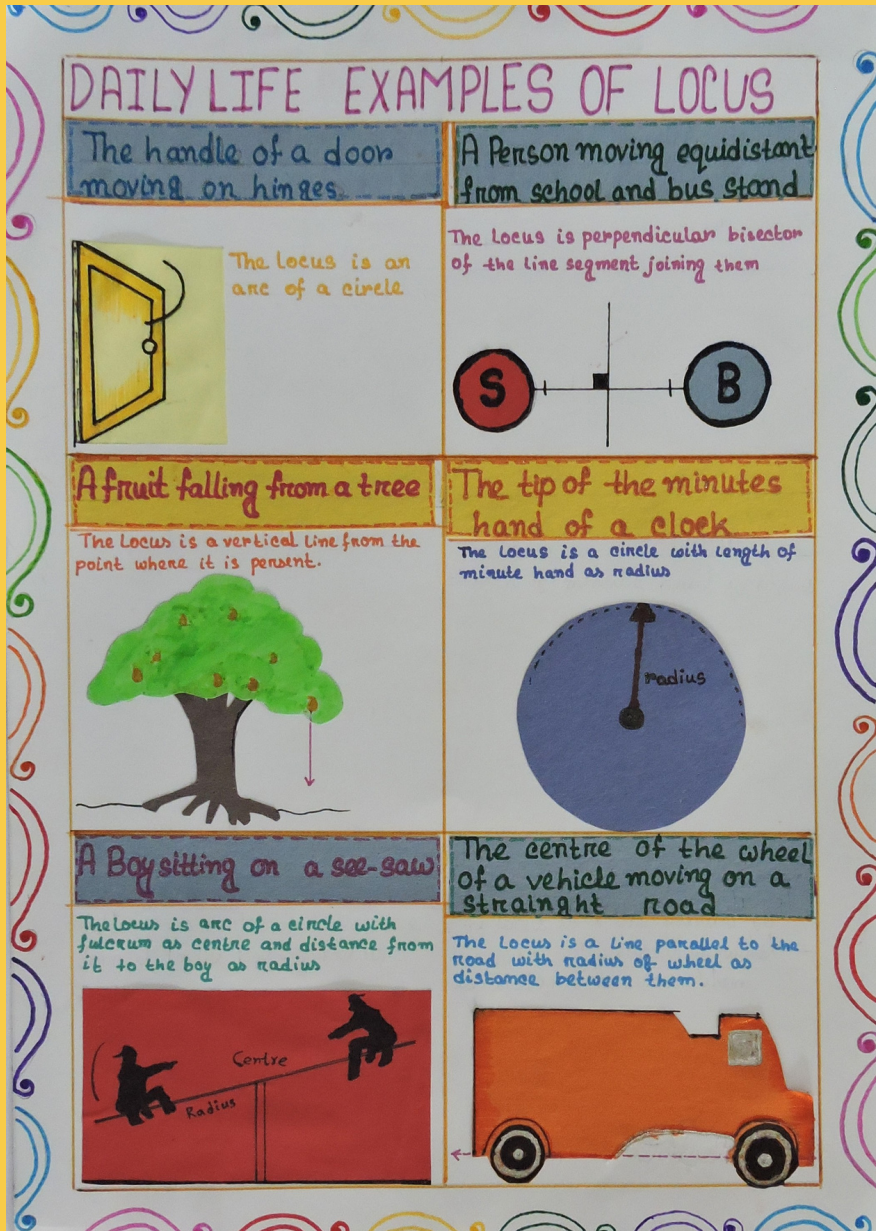 DAILY LIFE EXAMPLES OF LOCUS
The handle of a door
moving on hinges
The Locus is an
arc of a circle
A Person moving equidistant
from school and bus stand
The Locus is perpendicular bisector
of the line segment joining them
S
B
A fruit falling from a tree
The Locus is a vertical line from the
point where it is persent.
The tip of the minutes
hand of a clock
The locus is a circle with length of
minute hand as radius
radius
A Boy sitting on a see-saw
The locus is arc of a circle with
fulcrum as centre and distance from
it to the boy as radius
Centre
Radius
The centre of the wheel
of a vehicle moving on a
strainght road
The Locus is a line parallel to the
road with radius of wheel as
distance between them.